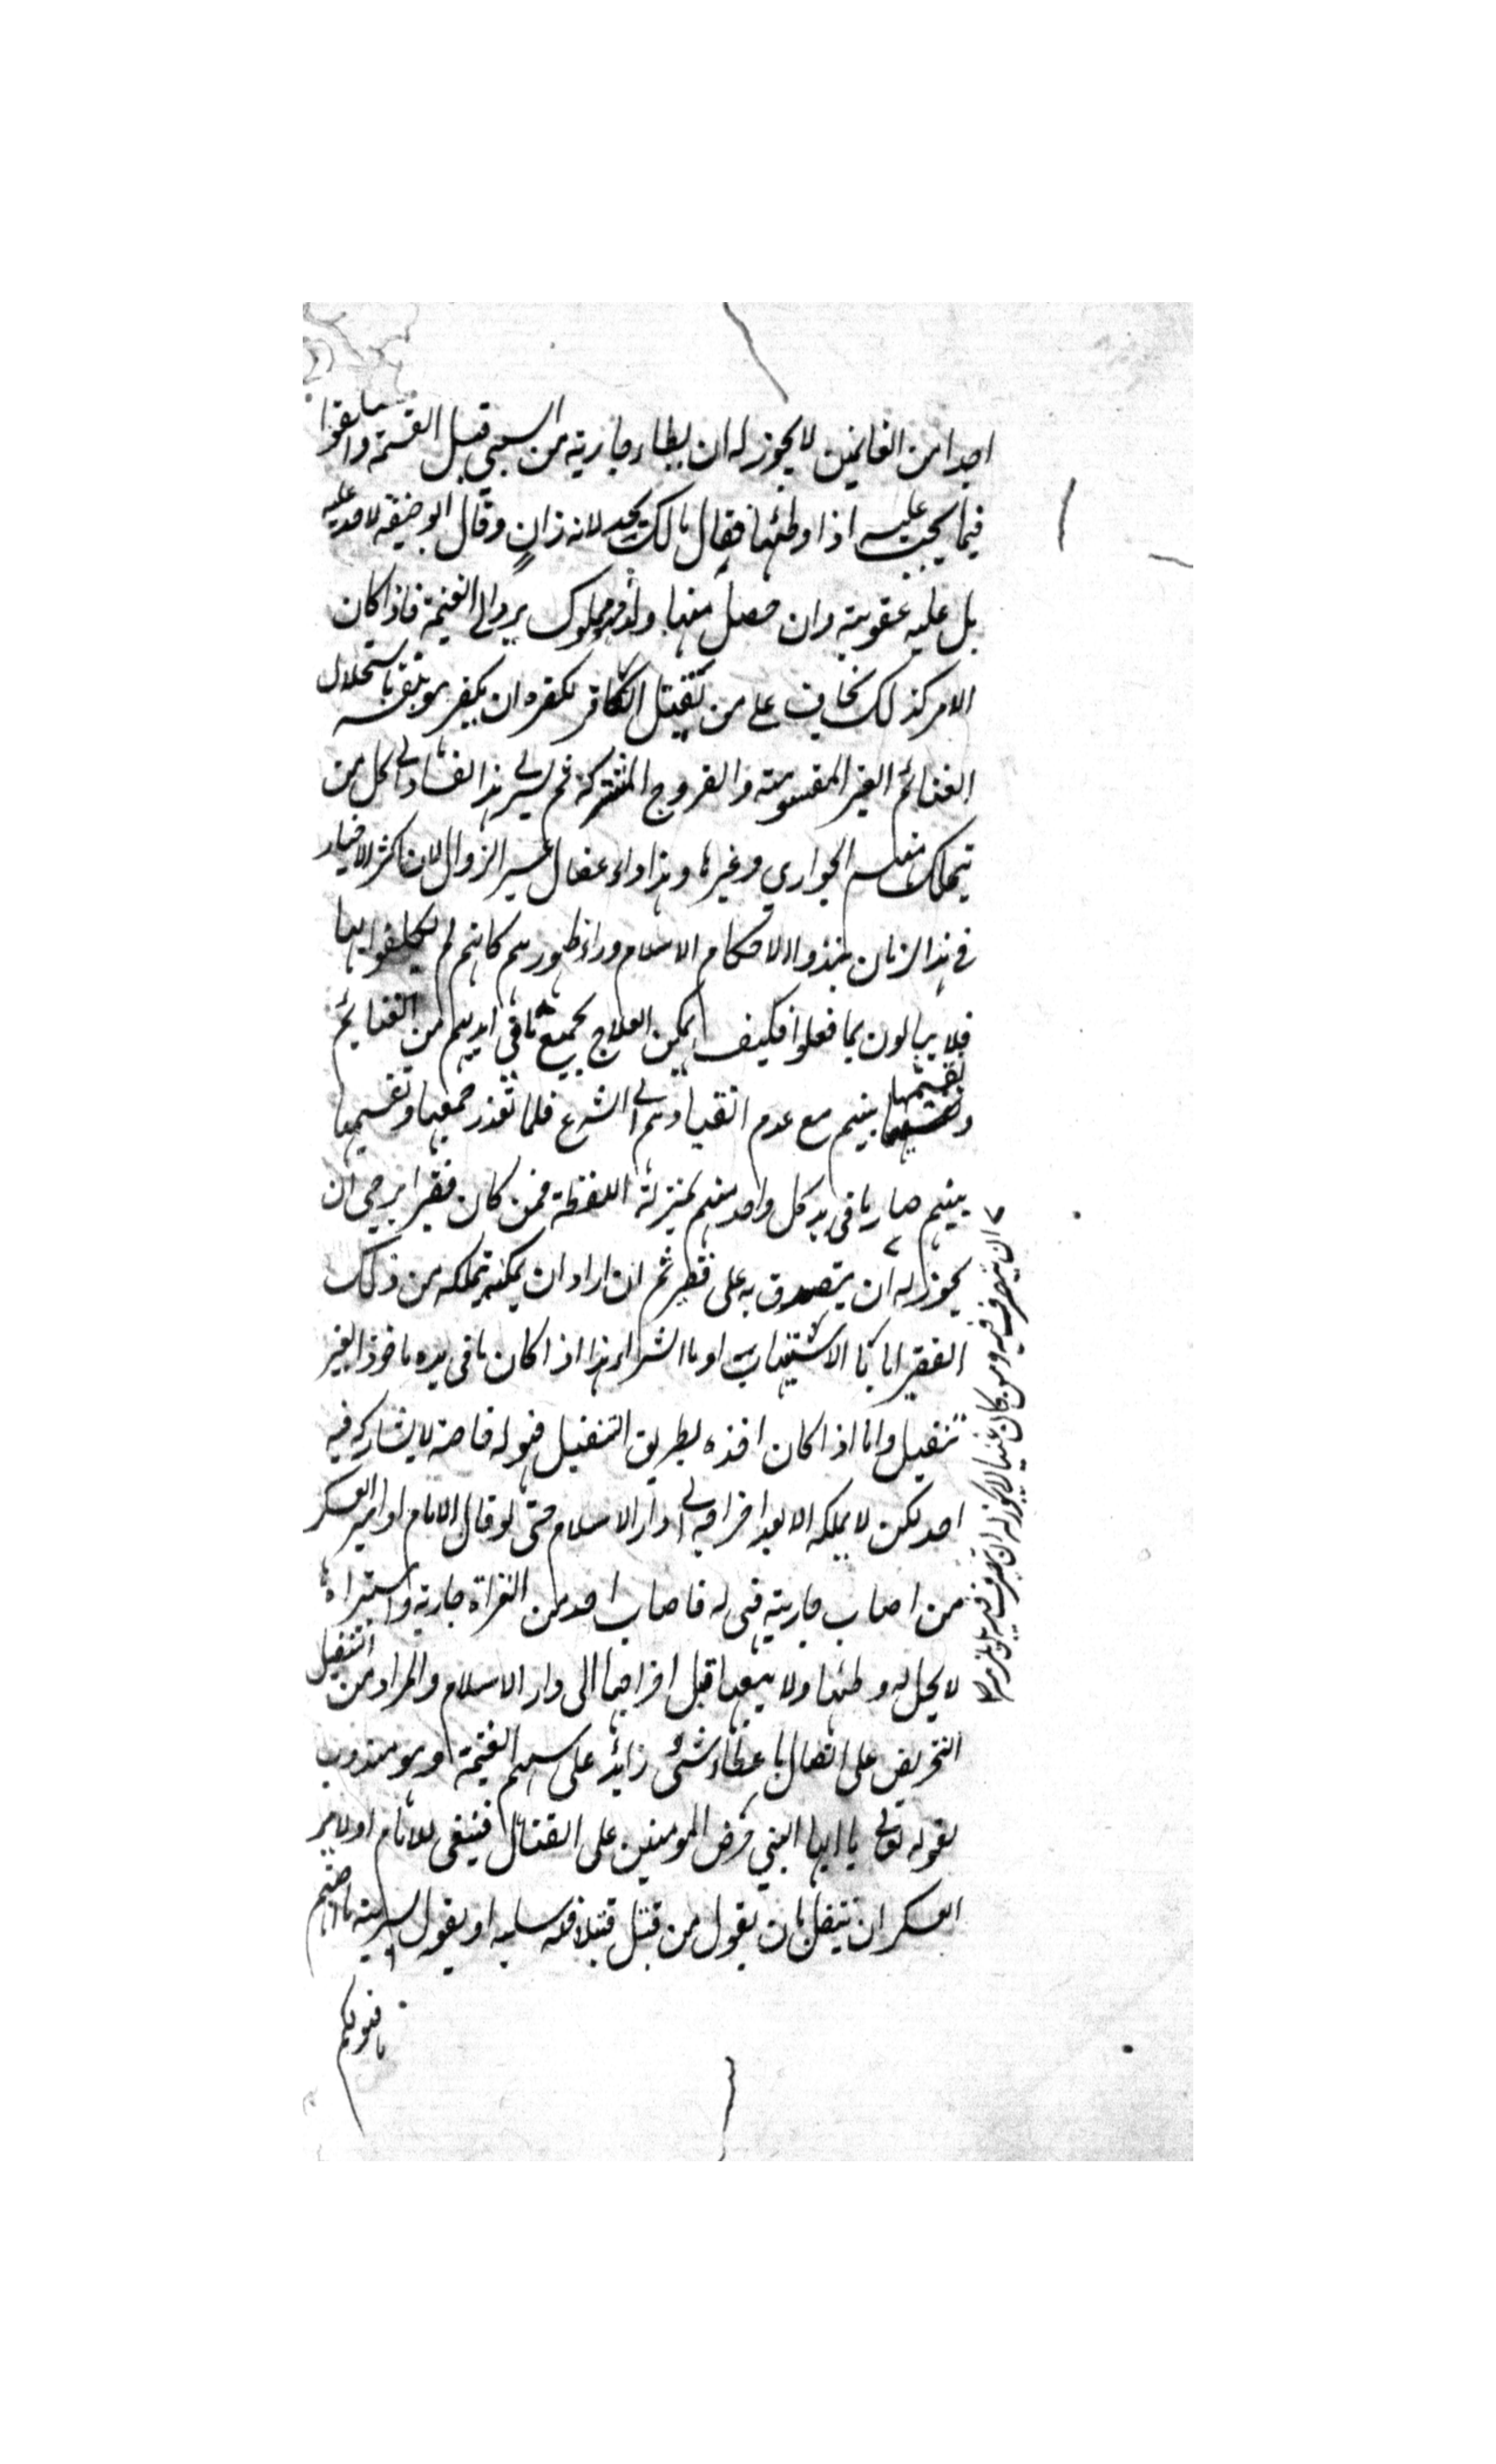 احدا من الغانمين لا يجوز له ان يطاء جارية من السبي قبل القسمة واتفقوا
فيما يجب عليه اذا وطئها فقال مالك يحد لانه زانٍ وقال ابو حنيفة لا حد عليه
بل عليه عقوبة وان حصل منها ولد فهو مملوك يرد الى الغنيمة فاذا كان
الامر كذلك يخاف على من يقتل الكافر لكفره ان يكفر هو بنفسه باستحلال
الغنائم الغير المقسومة والفروج المشتركة ثم يسرى هذا الفساد الى كل من
يتملك منهم الجواري وغيرها وهذا داء عضال عسير الزوال لان اكثر الاخيار
في هذا الزمان نبذوا الاحكام الاسلام وراء ظهورهم كانهم لم يكلفوا بها
فلا يبالون بما فعلوا فكيف يمكن العلاج بجميع ما في ايديهم من الغنايم
وتقسيمها بينهم مع عدم انقيادهم الى الشرع فلما تعذر جمعها وتقسيمها
بينهم صار ما في يد كل واحد منهم بمنزلة اللقطة فمن كان فقيرا يرجى ان
يجوز له ان يتصدق به على فقير ثم ان اراد ان يمكنه تملكه من ذلك
الفقير اما بالاستيهاب او بالشراء هذا اذا كان ما في يده ماخوذ الغير
تنفيل واما اذا كان اخذه بطريق التنفيل فهو له خاصة لا يشاركه فيه
احد لكن لا يملكه الا بعد اخراجه الى دار الاسلام حتى لو قال الامام او امير العسكر
من اصاب جارية فهى له فاصاب احد من الغزاة جارية واستبراء
لا يحل له وطئها ولا بيعها قبل اخراجها الى دار الاسلام والمراد من التنفيل
التحريض على القتال باعطاء شئ زائد على سهم الغنيمة وهو مندوب
لقوله تعالى يا ايها النبي حرض المومنين على القتال فينبغى للامام او لامير
العسكر ان ينفل بان يقول من قتل قتيلا فله سلبه او يقول لسرية ما اصبتم
فهو لكم
ان يتصرف فيه ومن كان غنيا لا يجوز له ان يتصرف فيه بل يلزم